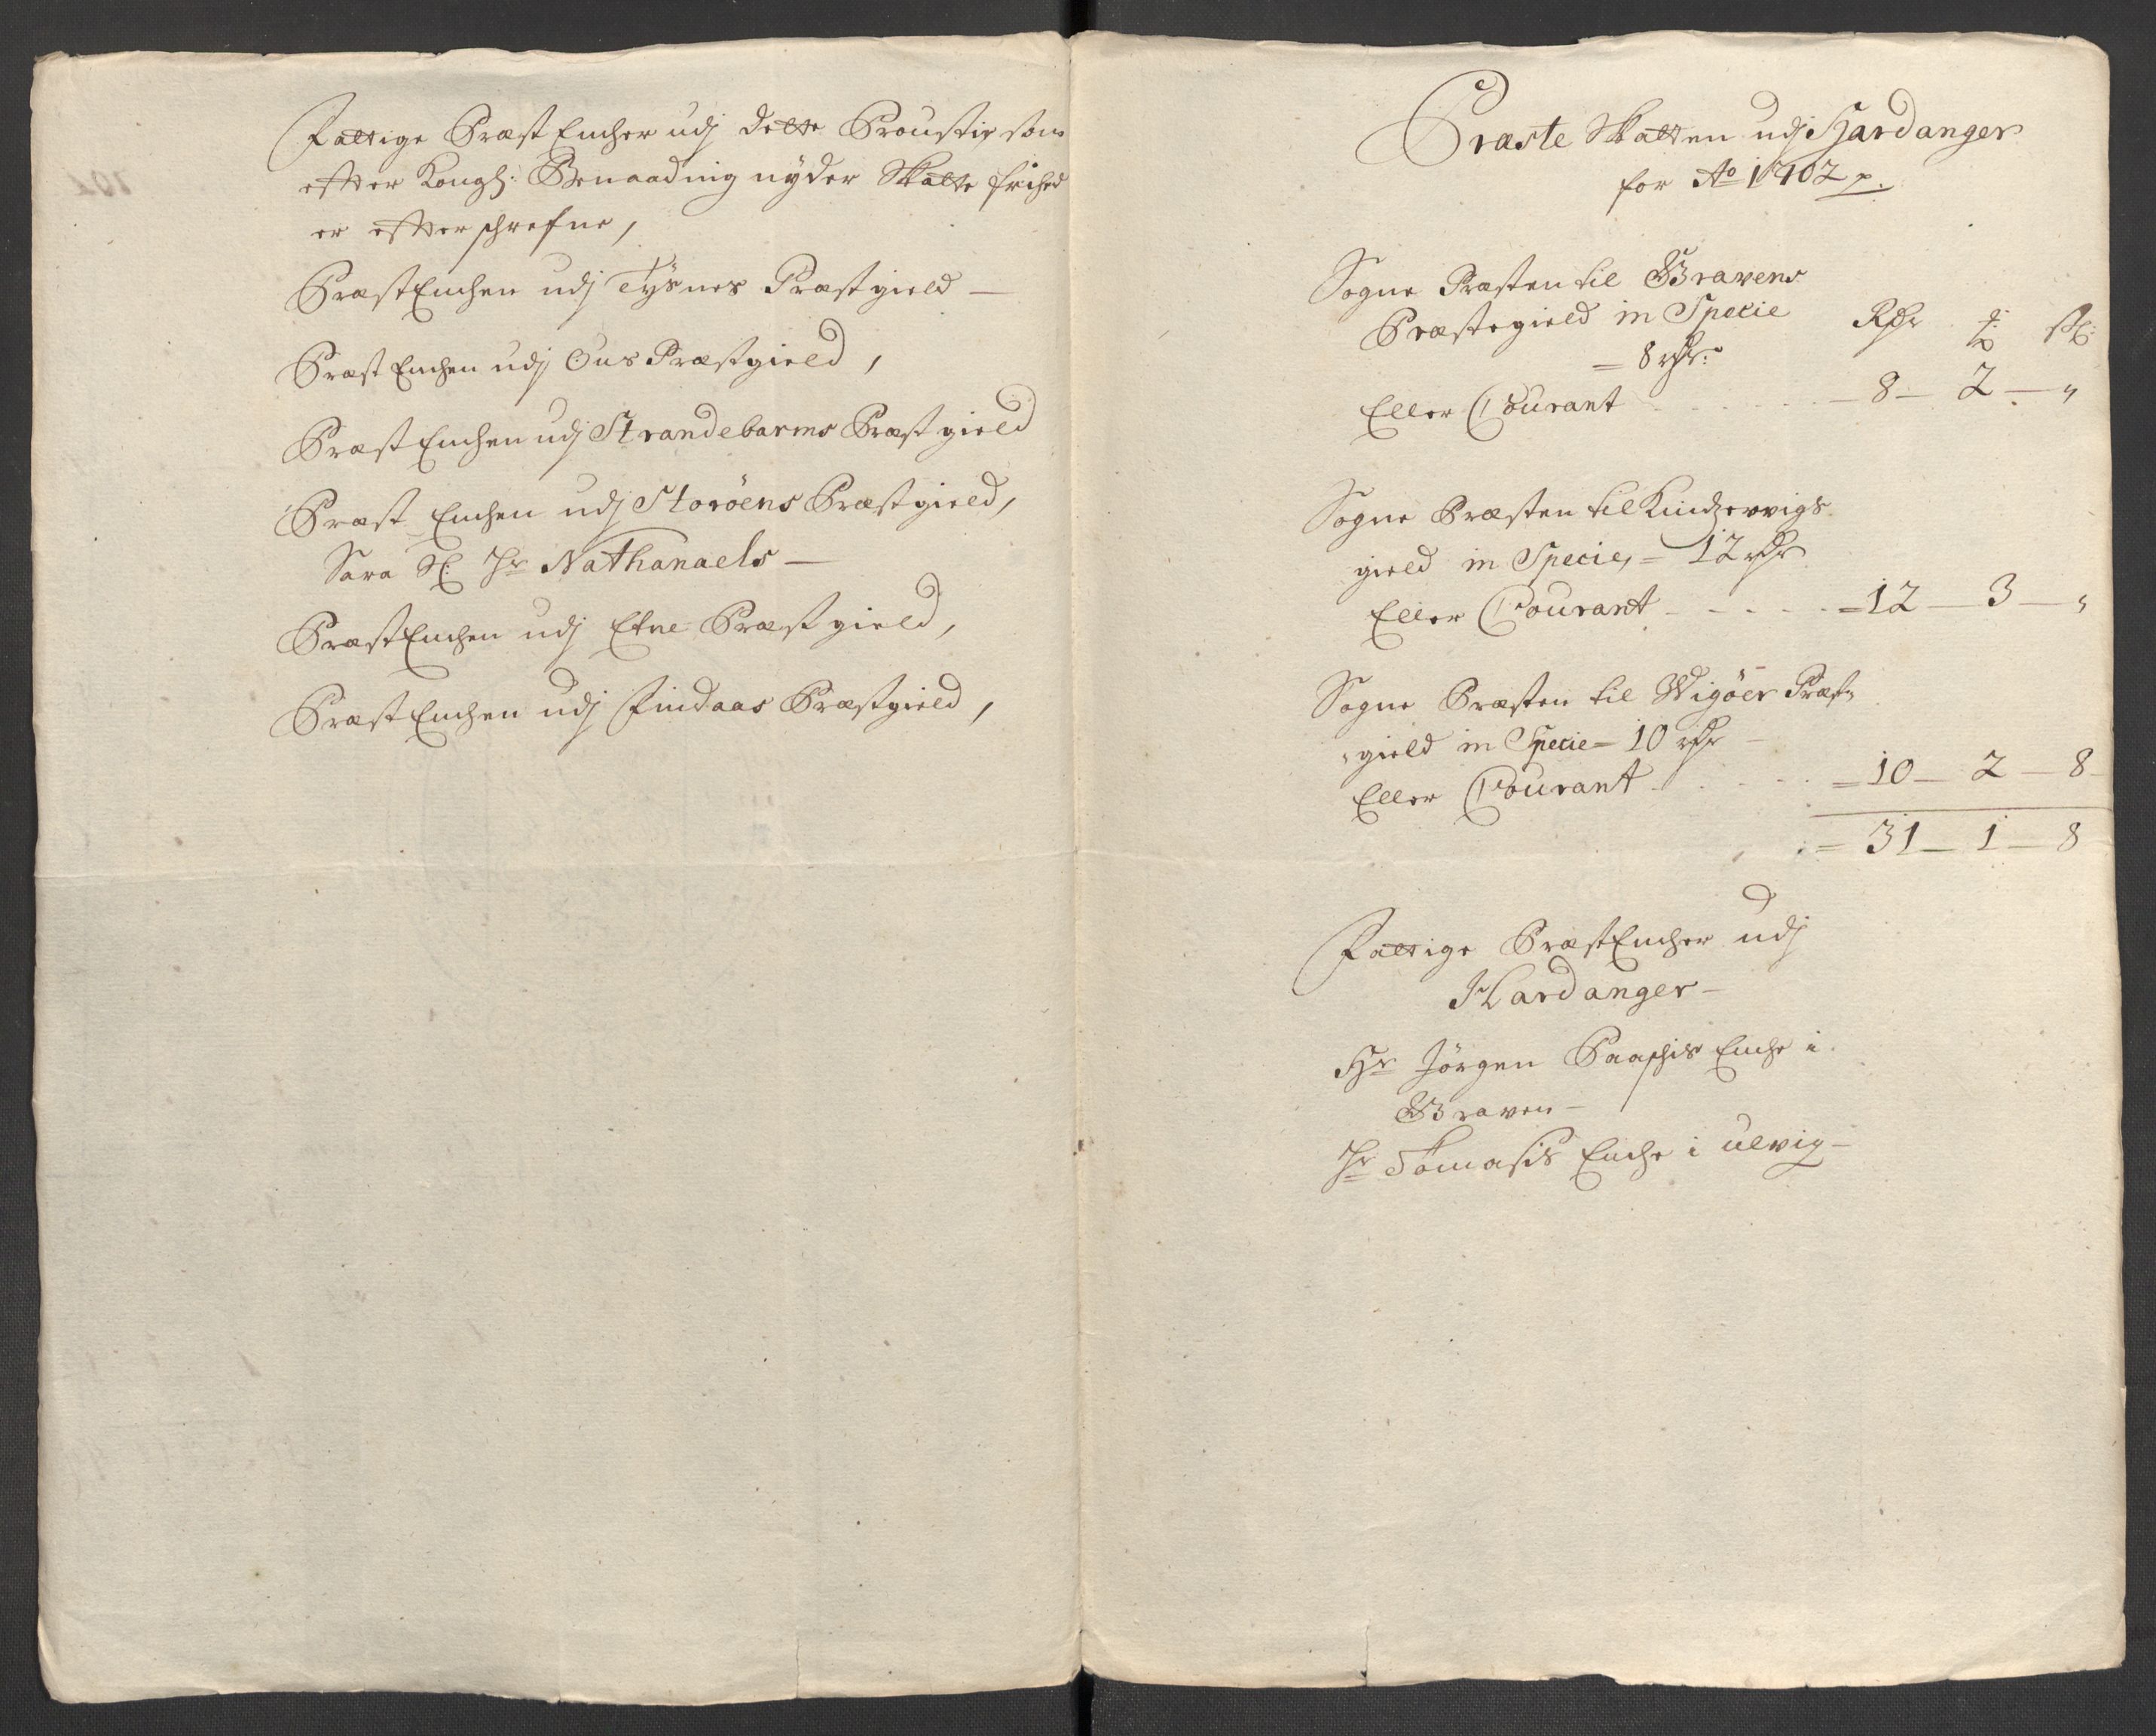 Fattige Præst Encher udj dette Proustie som
efter Kongl: Benaadning nyder Skatte frihed
er efterschrefne,
PræstEnchen udj Tÿsnes Præstgield —
Præst Enchen udj Ous Præstgield,
Præst Enchen udj Strandebarms Præstgield
Præst Enchen udj Storöens Præstgield,
Sara Sl: Hr Nathanaels —
PræstEnchen udj Etne Præstgield,
PræstEnchen udj Findaas Præstgield,
Præste Skatten udj Hardanger
for Ao 1702
Sogne Præsten til Gravens
Præstegield in Specie
= 8 rdr:
Rdr
Eller Courant — 8 — 2 — "
Sogne Præsten til Kindzervigs
gield in Specie, = 12 rdr
Eller Courant = 12 — 3 — "
Sogne Præsten til Wigöer Præst
gield in Specie = 10 rdr
Eller Courant = 10 — 2 — 8
= 31 — 1 — 8
Fattige PræstEncher udj
Hardanger —
Hr Jörgen Enche i
Graven —
Hr Tomasis Enche i ulvig —